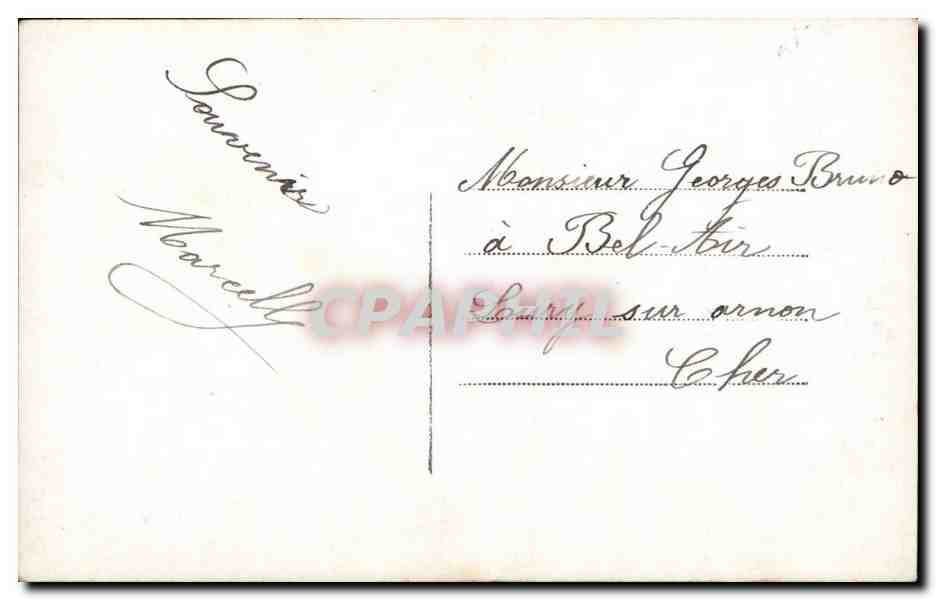 Souvenir
Marcelle
Monsieur Georges Bruno
à Bel-Air
Lury sur arnon
Cher
CPAPHIL